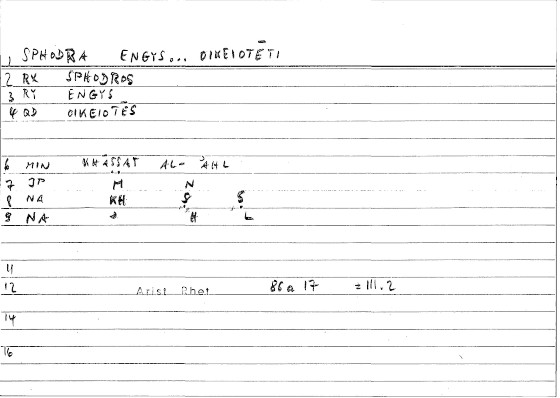 1 SPHODRA ENGYS... OIKEIOTĒTI
2 RX SPHODROS
3 RY ENGYS
4 QD OIKEIOTĒS
6 MIN KHĀṢṢAT AL- ʾAHL
7 JP M N
8 NA KH Ṣ Ṣ
9 NA ʾ H L
11
12 Arist Rhet 86a 17 = III.2
14
16